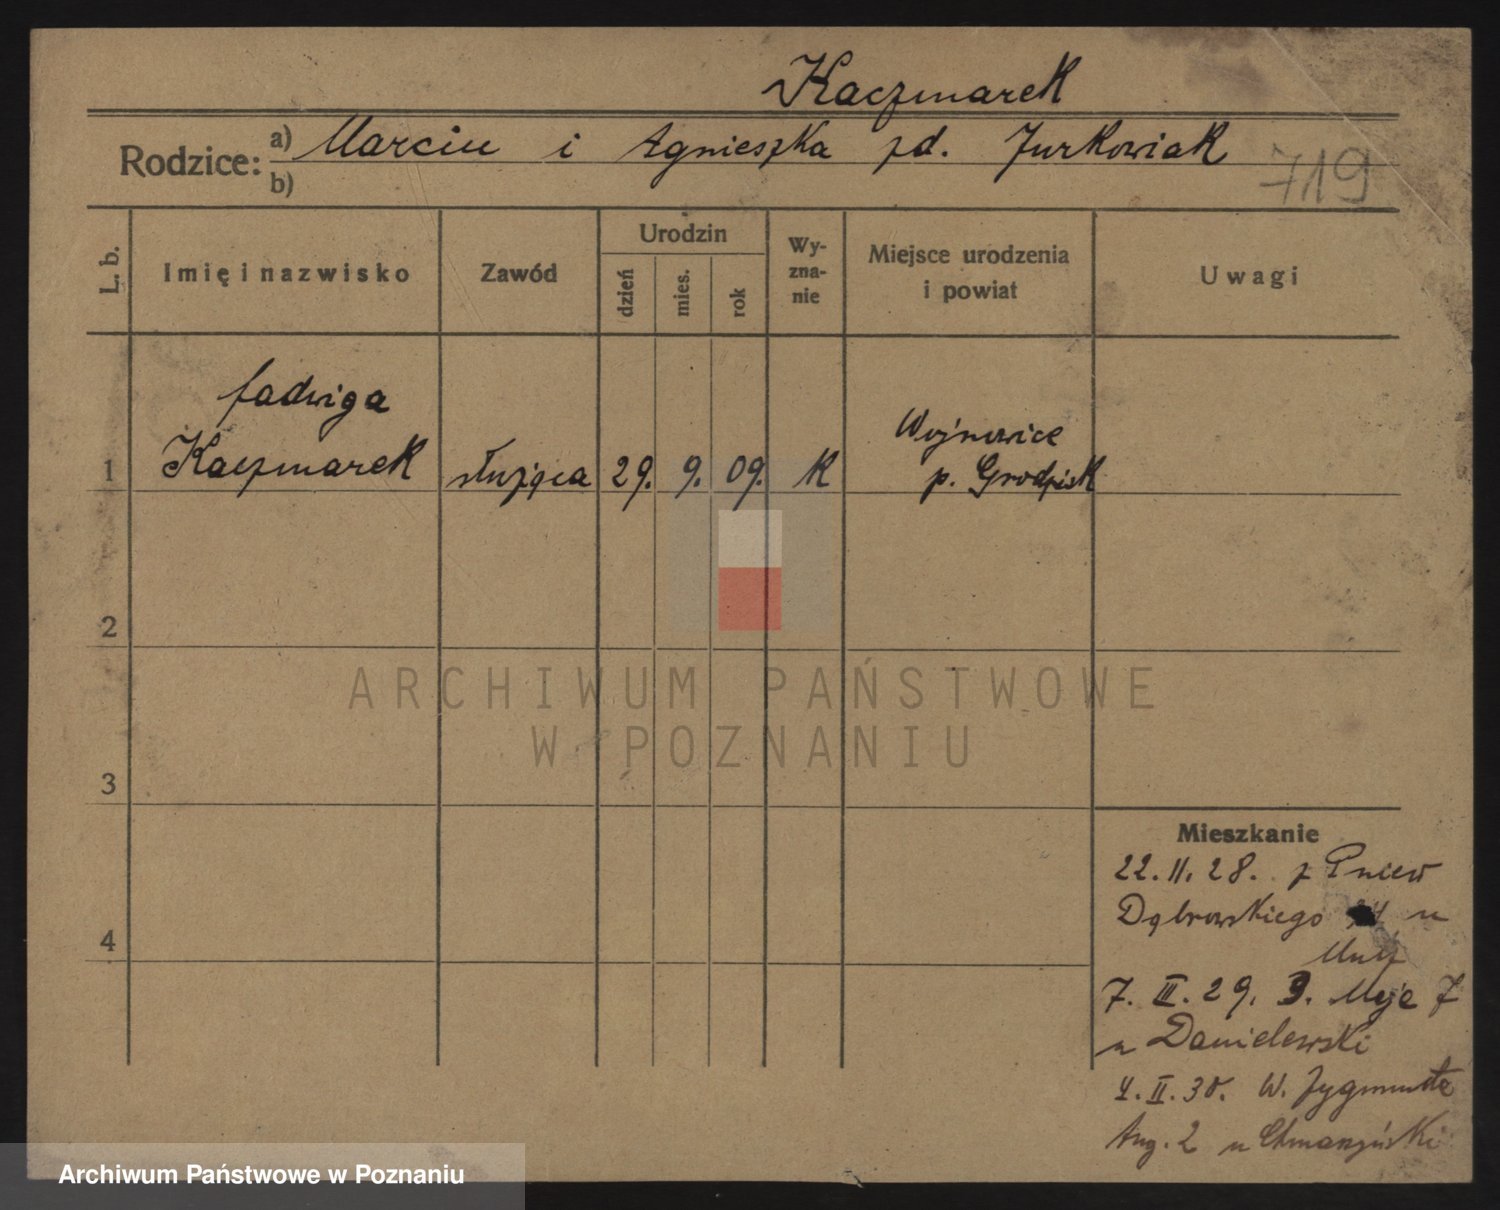 Kaczmarek
Rodzice: a) Marcin i Agnieszka zd. Jurkowiak
b)
719
L. b.
Imię i nazwisko
Zawód
Urodzin
dzień
mies.
rok
Wy-
zna-
nie
Miejsce urodzenia
i powiat
Uwagi
Jadwiga
1 Kaczmarek służąca 29. 9. 09. k
Wojnowice
p. Grodzisk
2
3
4
ARCHIWUM PAŃSTWOWE
W POZNANIU
Mieszkanie
22. II. 28. z Pniew
Dąbrowskiego u
7. III. 29. 3. Maja 7
u Danielewski
4. II. 30. W. Zygmunta
Aug. 2 u Chmarzyński
Archiwum Państwowe w Poznaniu